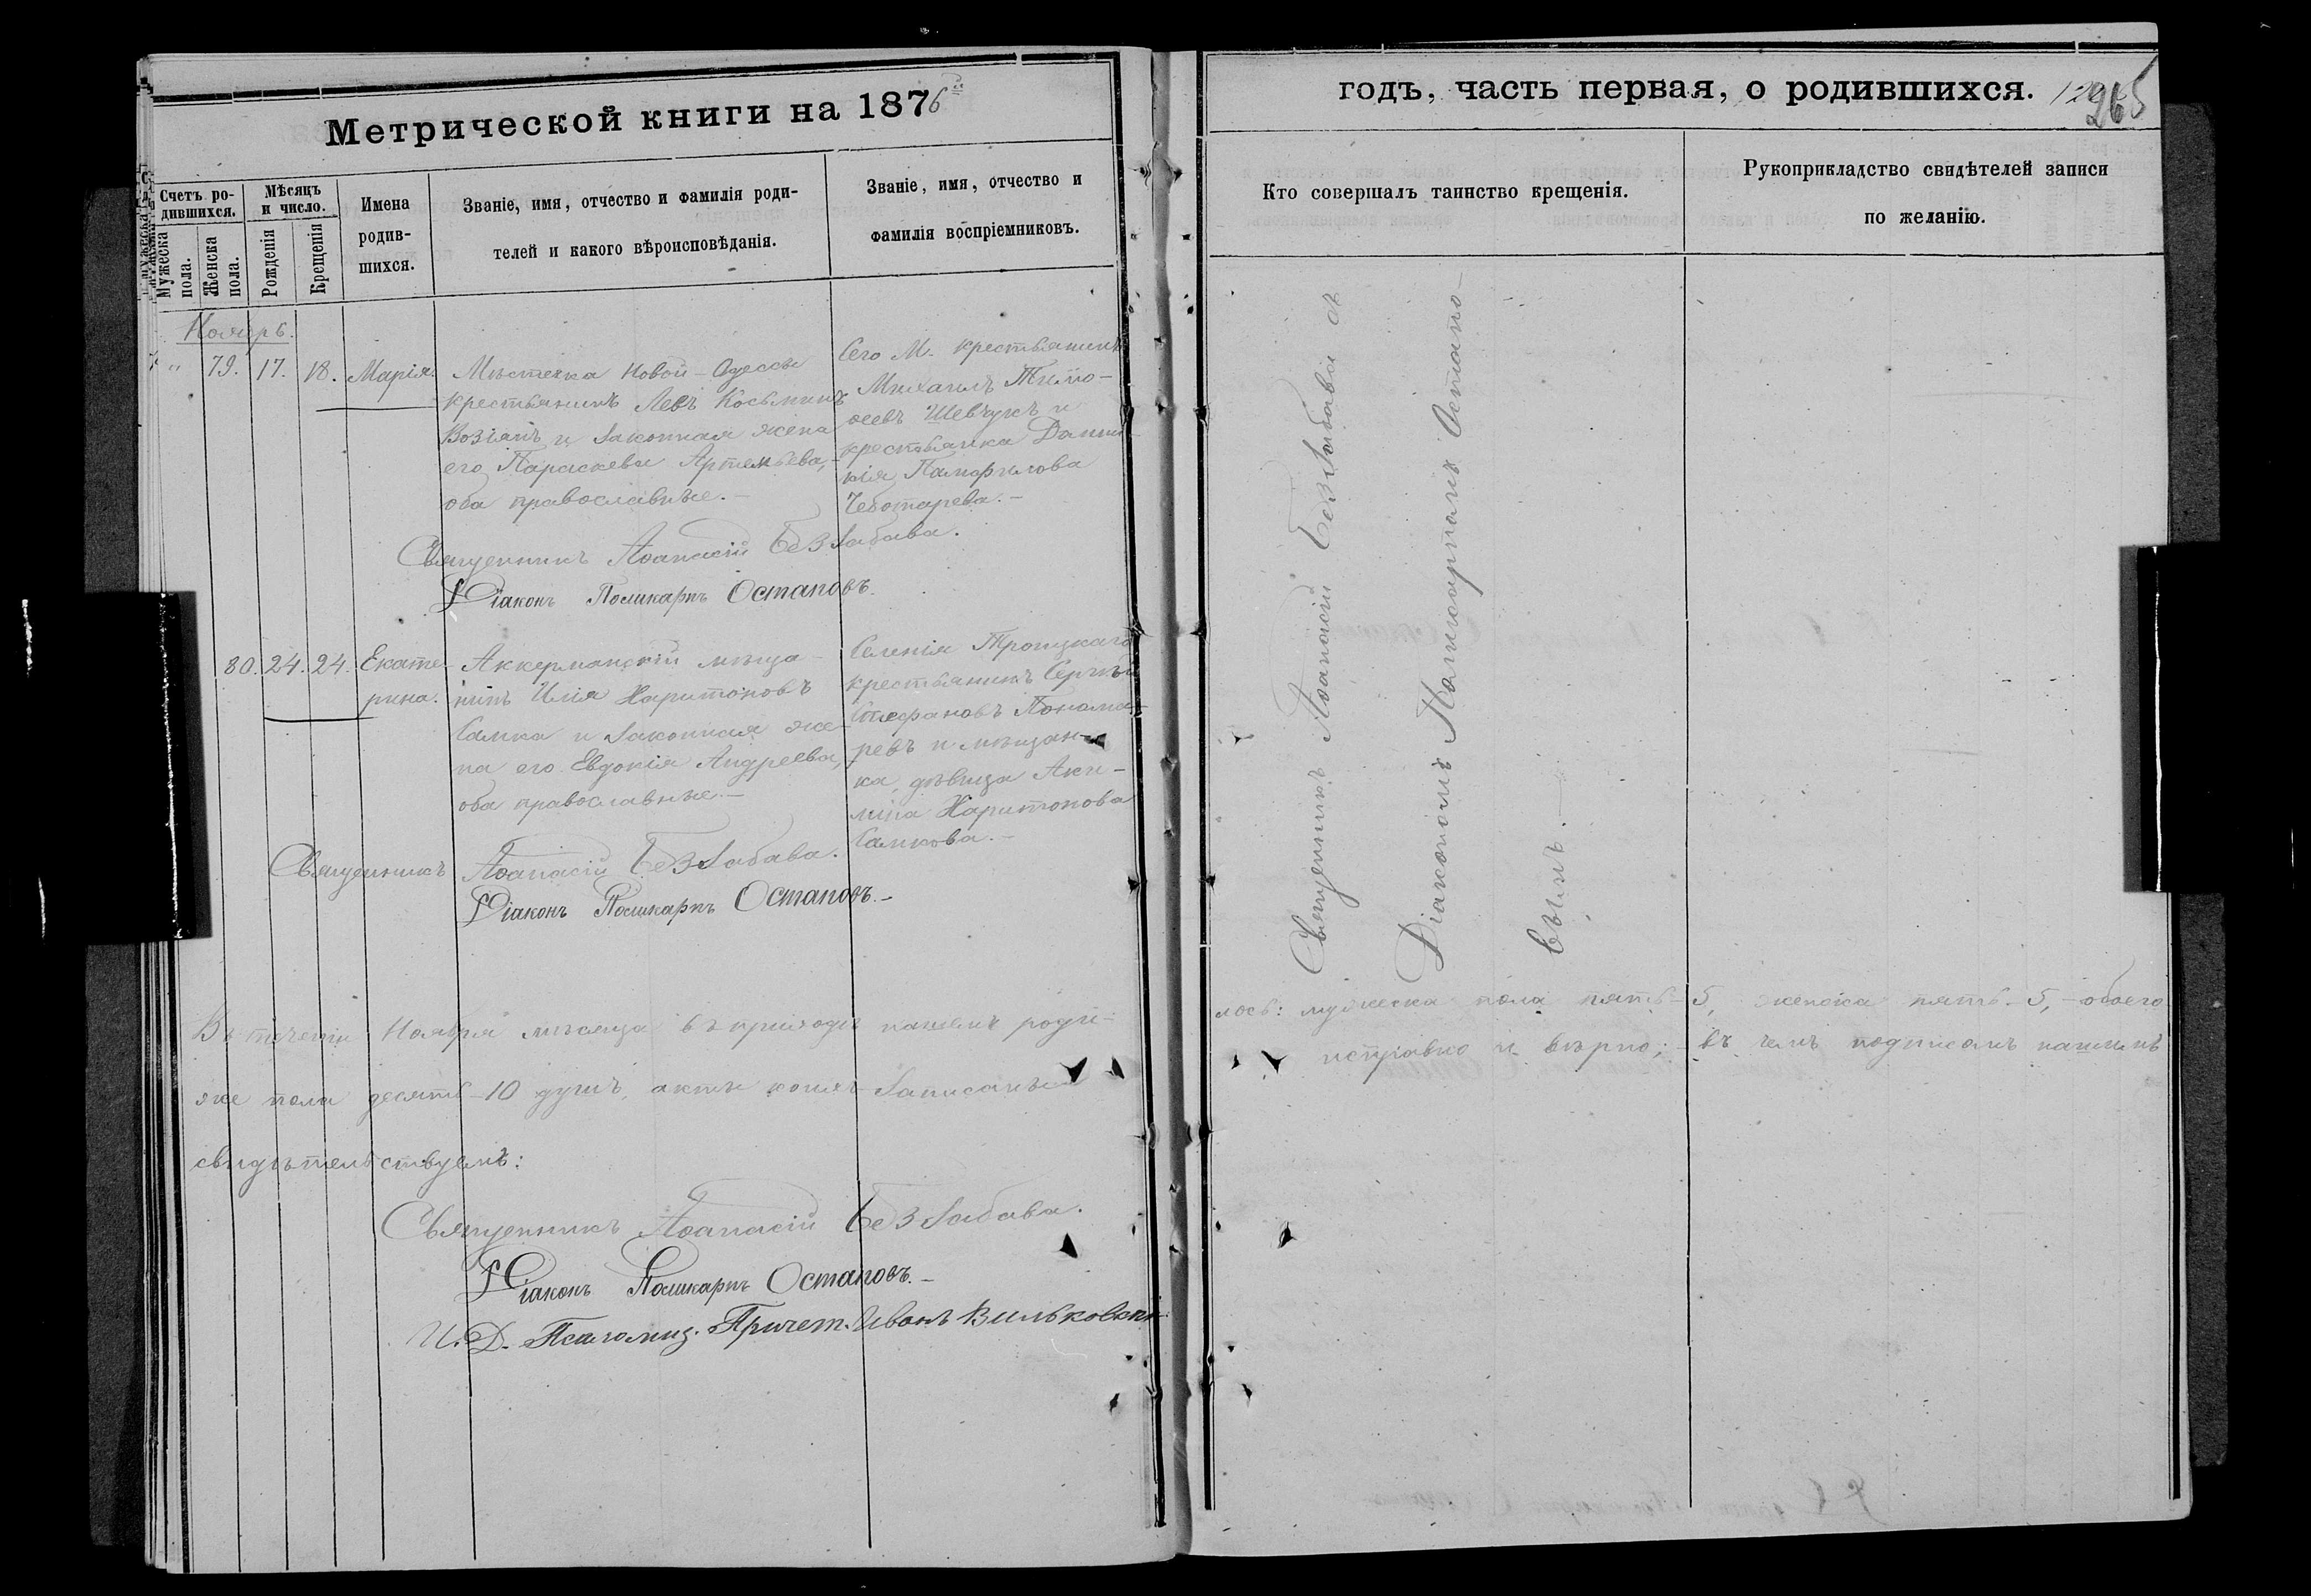 Метрической книги на 1876й
годъ, часть первая, о родившихся.
265
Счетъ ро-
дившихся.
Мужеска
пола.
Женска
пола.
Мѣсяцъ
и число.
Рожденія
Крещенія
Имена
родив-
шихся.
Званіе, имя, отчество и фамилія роди-
телей и какого вѣроисповѣданія.
Званіе, имя, отчество и
фамилія воспріемниковъ.
Кто совершалъ таинство крещенія.
Рукоприкладство свидѣтелей записи
по желанію.
Ноябрь.
" 79. 17. 18. Марія.
Мѣстечка Новой-Одессы
крестьянинъ Левъ Косьминъ
Возіанъ и законная жена
его Параскева Артемьева,
оба православные.-
Сего М. крестьянинъ
Михаилъ Тимо-
ѳеевъ Шевчукъ и
крестьянка
Памфилова
Чеботарева.-
Священникъ Аѳанасій Беззабава.
Діаконъ Поликарпъ Остаповъ.
80. 24. 24. Екате-
рина.
Аккерманскій мѣща-
нинъ Илія Харитоновъ
Самка и законная же-
на его Евдокія Андреева,
оба православные.-
Селенія Троицкаго
крестьянинъ Сергѣй
Стефановъ Понома-
ревъ и мѣщан-
ка, дѣвица Аки-
лина Харитонова
Самкова.-
Священникъ Аѳанасій Беззабава.
Діаконъ Поликарпъ Остаповъ.-
Священникъ Аѳанасій Беззабава съ
Діакономъ Поликарпомъ Остапо-
вымъ.-
Въ теченіи Ноября мѣсяца въ приходѣ нашемъ роди-
лось: мужеска пола пять-5, женска пять-5, обоего
же пола десять-10 душъ, акты коихъ записаны
исправно и вѣрно; въ чемъ подписомъ нашимъ
свидѣтельствуемъ:
Священникъ Аѳанасій Беззабава.
Діаконъ Поликарпъ Остаповъ.-
И.Д. Псаломщ. Причет. Иванъ Вильковскій